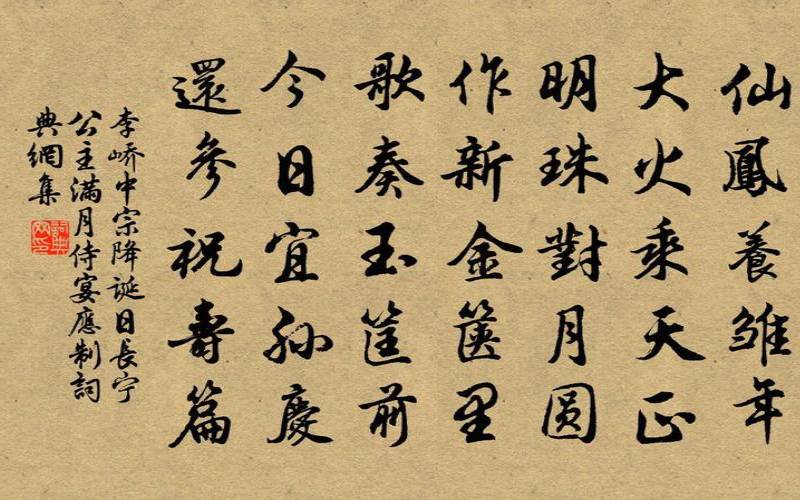 仙鳳養雏年
大火乘天正
明珠對月圆
作新金箧里
歌奏玉筐前
今日宜孙慶
還參祝壽篇
李峤中宗降诞日長宁
公主满月侍宴應制詞
典網集